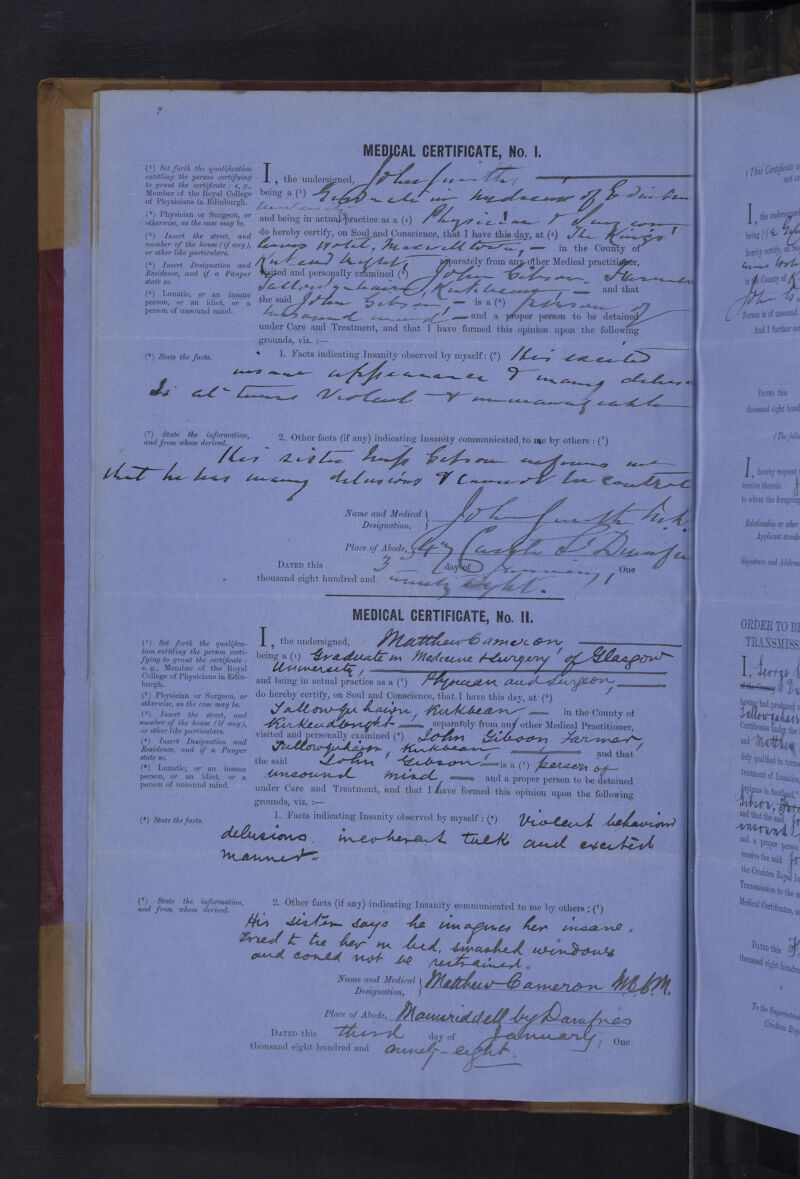 MEDICAL CERTIFICATE, No. I.
(¹) Set forth the qualification
entitling the person certifying
to grant the certificate: e, g.,
Member of the Royal College
of Physicians in Edinburgh.
(²) Physician or Surgeon, or
otherwise, as the case may be.
(³) Insert the street, and
number of the house (if any),
or other like particulars.
(⁴) Insert Designation and
Residence, and if a Pauper
state so.
(⁵) Lunatic, or an insane
person, or an idiot, or a
person of unsound mind.
I, the undersigned, John Smith,
being a (¹) Graduate in medicine of Edinbur
University
and being in actual practice as a (²) Physician & Surgeon
do hereby certify, on Soul and Conscience, that I have this day, at (³) The Kings
arms Hotel, Maxwelltown, — in the County of
Kirkcudbright separately from any other Medical practitioner,
visited and personally examined (⁴) John Gibson Farmer
Fallowquhairn, Kirkbean — and that
the said John Gibson — is a (⁵) person of
unsound mind — and a proper person to be detained
under Care and Treatment, and that I have formed this opinion upon the following
grounds, viz. :—
(⁶) State the facts.
1. Facts indicating Insanity observed by myself: (⁶) His excited
insane appearance & many delus
Is at times violent & unmanageable
(⁷) State the information,
and from whom derived.
2. Other facts (if any) indicating Insanity communicated to me by others: (⁷)
His sister Miss Gibson informs me
that he has many delusions & cannot be control
Name and Medical
Designation, John Smith M.B.
Place of Abode, Castle St Dumfr
DATED this 3ᵈ day of January, One
thousand eight hundred and ninety eight.
MEDICAL CERTIFICATE, No. II.
(¹) Set forth the qualifica-
tion entitling the person certi-
fying to grant the certificate:
e. g., Member of the Royal
College of Physicians in Edin-
burgh.
(²) Physician or Surgeon, or
otherwise, as the case may be.
(³) Insert the street, and
number of the house (if any),
or other like particulars.
(⁴) Insert Designation and
Residence, and if a Pauper
state so.
(⁵) Lunatic, or an insane
person, or an idiot, or a
person of unsound mind.
I, the undersigned, Matthew Cameron,
being a (¹) Graduate in Medicine & Surgery of Glasgow
University,
and being in actual practice as a (²) Physician and Surgeon,
do hereby certify, on Soul and Conscience, that I have this day, at (³)
Fallowquhairn, Kirkbean — in the County of
Kirkcudbright — separately from any other Medical Practitioner,
visited and personally examined (⁴) John Gibson Farmer,
Fallowquhairn, Kirkbean — and that
the said John Gibson — is a (⁵) person of
unsound mind, — and a proper person to be detained
under Care and Treatment, and that I have formed this opinion upon the following
grounds, viz. :—
(⁶) State the facts.
1. Facts indicating Insanity observed by myself: (⁶) Violent behaviour
delusions. incoherent talk and excited
manner.
(⁷) State the information,
and from whom derived.
2. Other facts (if any) indicating Insanity communicated to me by others: (⁷)
His sister says he imagines her insane.
tried to tie her in bed, smashed windows
and could not be restrained.
Name and Medical
Designation, Matthew Cameron M.B.C.M.
Place of Abode, Mainsriddell by Dumfries
DATED this third day of January, One
thousand eight hundred and ninety-eight.
(This Certificate
I, the undersigned
being (¹)
hereby certify, on
in the County of
Person is of unsound
And I further
DATED this
thousand eight hund
(The follo
I, hereby request
receive therein
to whom the foregoing
Relationship or other
Applicant stands
Signature and Address
ORDER TO B
TRANSMISS
I, George
having had produced
Fallowquhairn
Certificates under the
and Matthew
duly qualified in terms
treatment of Lunatics
Asylums in Scotland,
Gibson,
and that the said
unsound
and a proper person
receive the said
the Crichton Royal In
Transmission to the
Medical Certificates,
DATED this
thousand eight hundre
To the Superintend
Crichton Roy